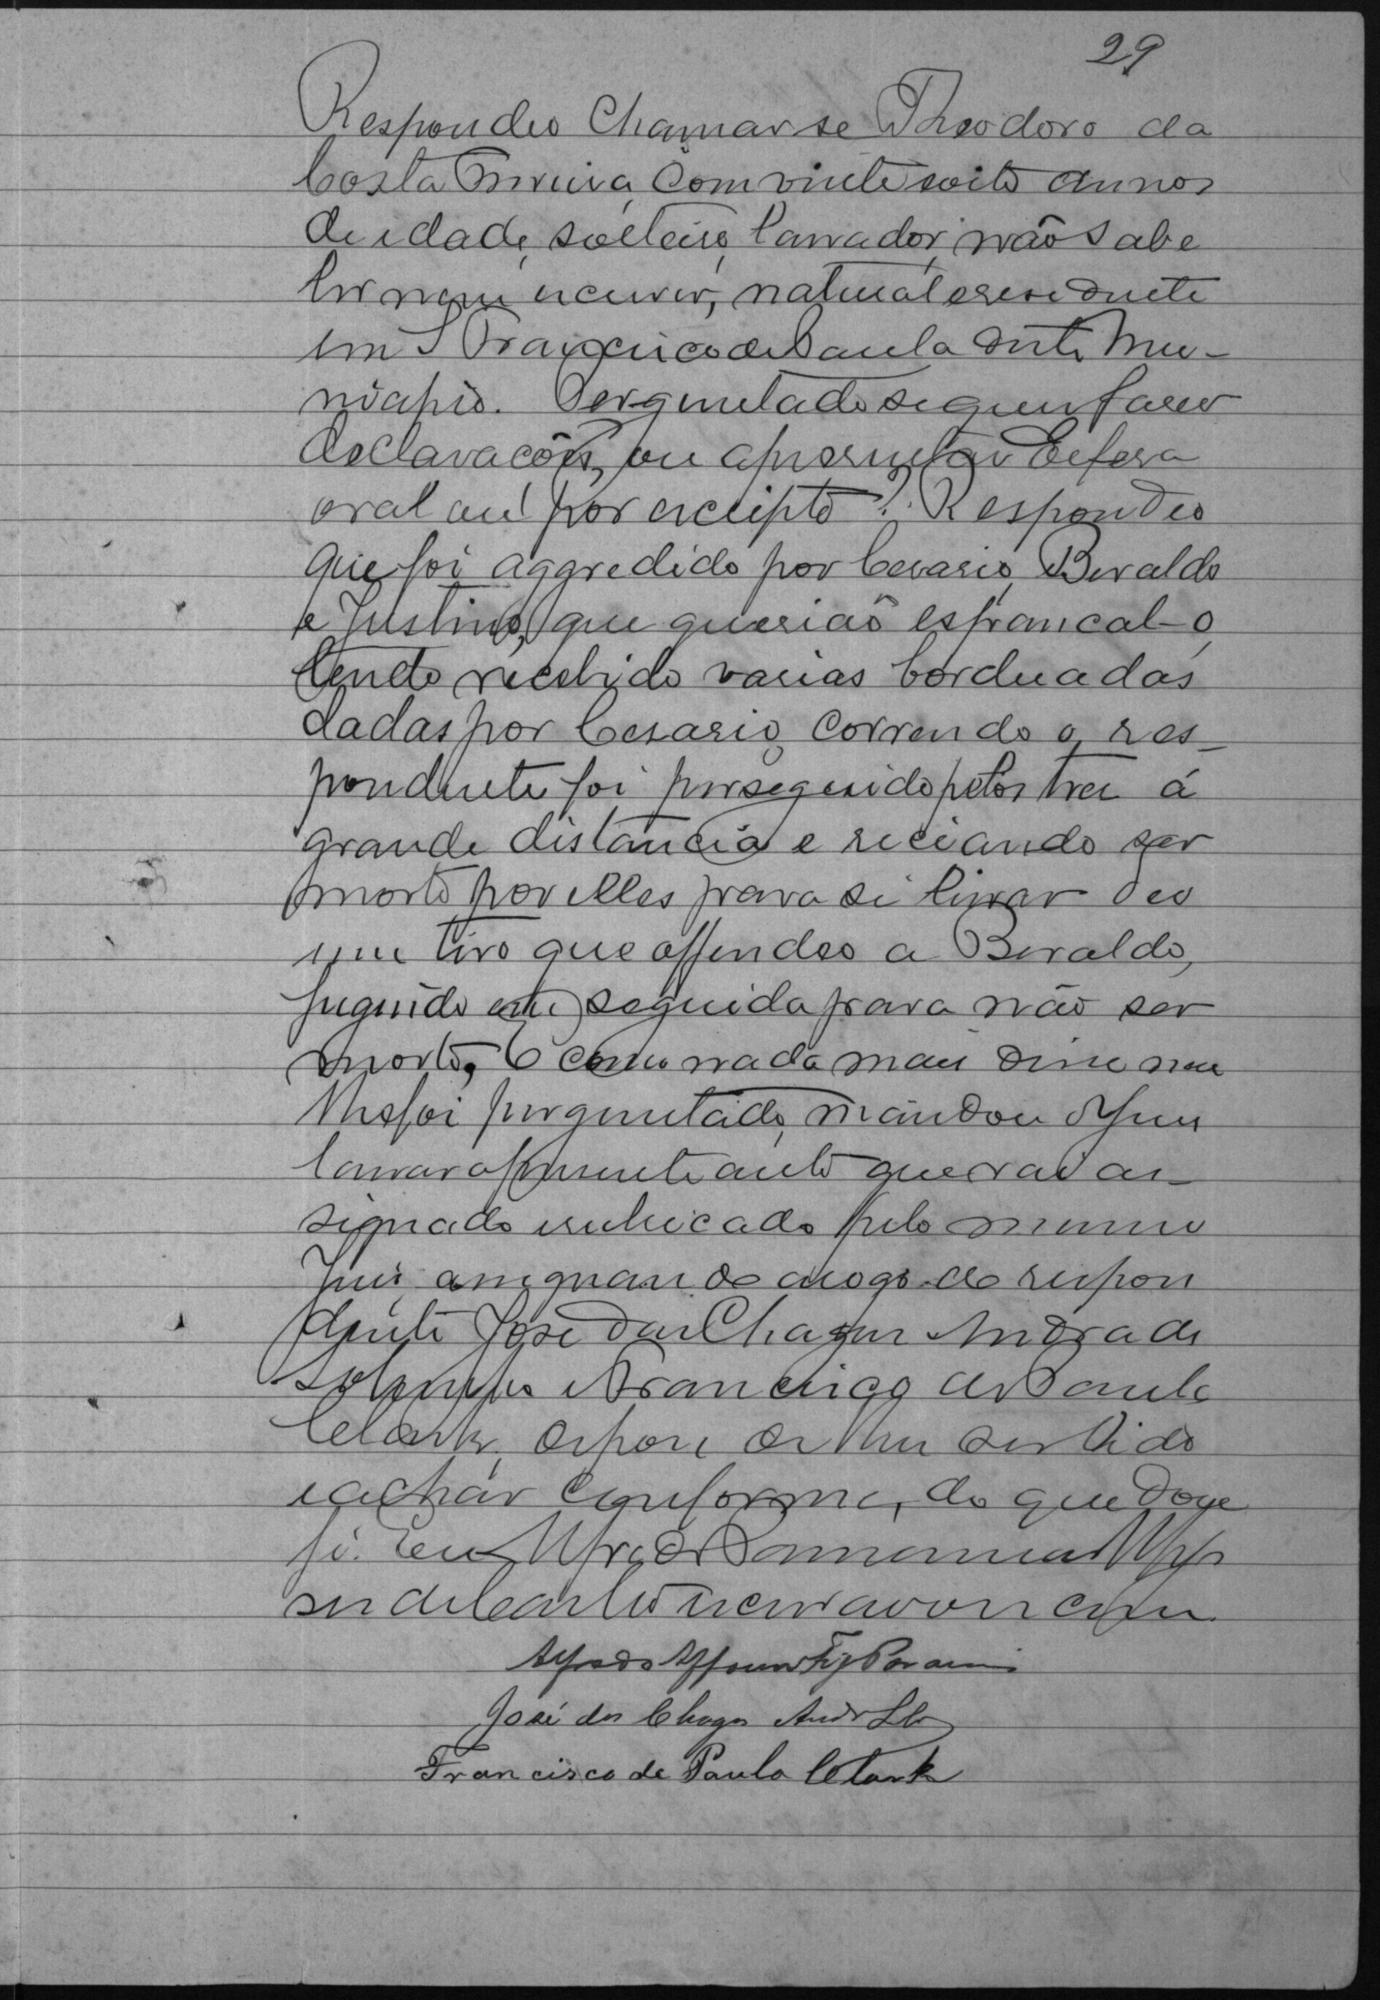 29
Respondeo chamar se Theodoro da
Costa com vinte e oito annos
de idade, solteiro, lavrador, não sabe
ler nem escrever, natural e residente
em S Francisco de Paula deste Mu-
nicipio. Perguntado se quer faser
declaracões, ou apresentar Defesa
oral ou por escripto? Respondeo
que foi aggredido por Cesario, Beraldo
e Justino, que queriaõ espancal-o,
tendo recebido varias borduadas
dadas por Cesario, correndo o res-
pondente foi perseguido pelos tres á
grande distancia e receiando ser
morto por elles para si livrar deo
um tiro que offendeo a Beraldo,
fugindo em seguida para não ser
morto, E como nada mais disse nem
lhe foi perguntado, mandou o Juis
lavrar o presente auto que vai as-
signado e rubricado pelo mesmo
Juis, assignando a rogo do respon
dente José das Chagas Andrade
e Francisco de Paula
Clark, depois de lhe ser lido
e achar conforme, do que dou
fé. Eu
escrivão escrevi
Alfredo
José das Chagas Andr
Francisco de Paula Clark